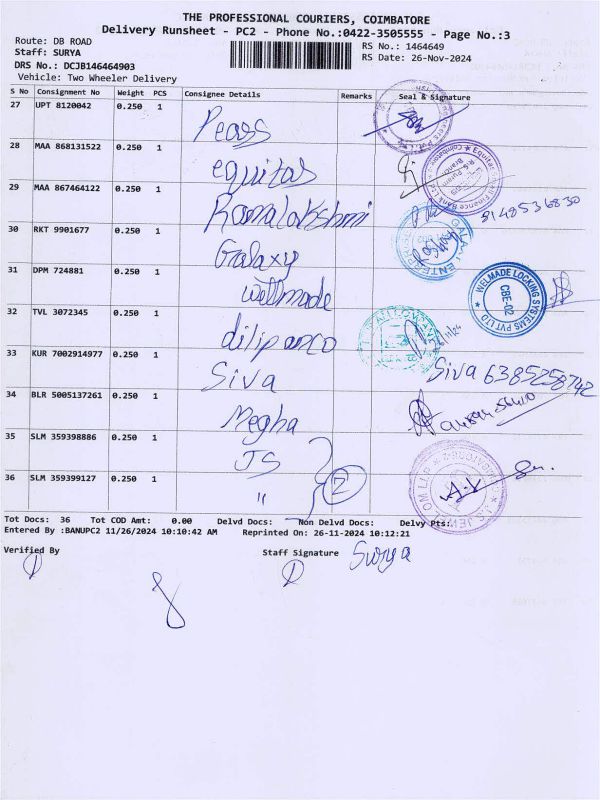 THE PROFESSIONAL COURIERS, COIMBATORE
Delivery Runsheet - PC2 - Phone No.:0422-3505555 - Page No.:3
Route: DB ROAD
RS No.: 1464649
Staff: SURYA
RS Date: 26-Nov-2024
DRS No.: DCJB146464903
Vehicle: Two Wheeler Delivery
S No Consignment No Weight PCS Consignee Details Remarks Seal & Signature
27 UPT 8120042 0.250 1 Pears
28 MAA 868131522 0.250 1 equitas
29 MAA 867464122 0.250 1 Ramalakshmi 8148536830
30 RKT 9901677 0.250 1 Galaxy
31 DPM 724881 0.250 1 wellmade
WELMADE LOCKING SYSTEMS PVT LTD
CBE-02
32 TVL 3072345 0.250 1 dilipanco
33 KUR 7002914977 0.250 1 Siva Siva 6385258742
34 BLR 5005137261 0.250 1 Megha
35 SLM 359398886 0.250 1 JS
36 SLM 359399127 0.250 1 " 2
Tot Docs: 36 Tot COD Amt: 0.00 Delvd Docs: Non Delvd Docs: Delvy Pts:
Entered By :BANUPC2 11/26/2024 10:10:42 AM Reprinted On: 26-11-2024 10:12:21
Verified By Staff Signature Surya